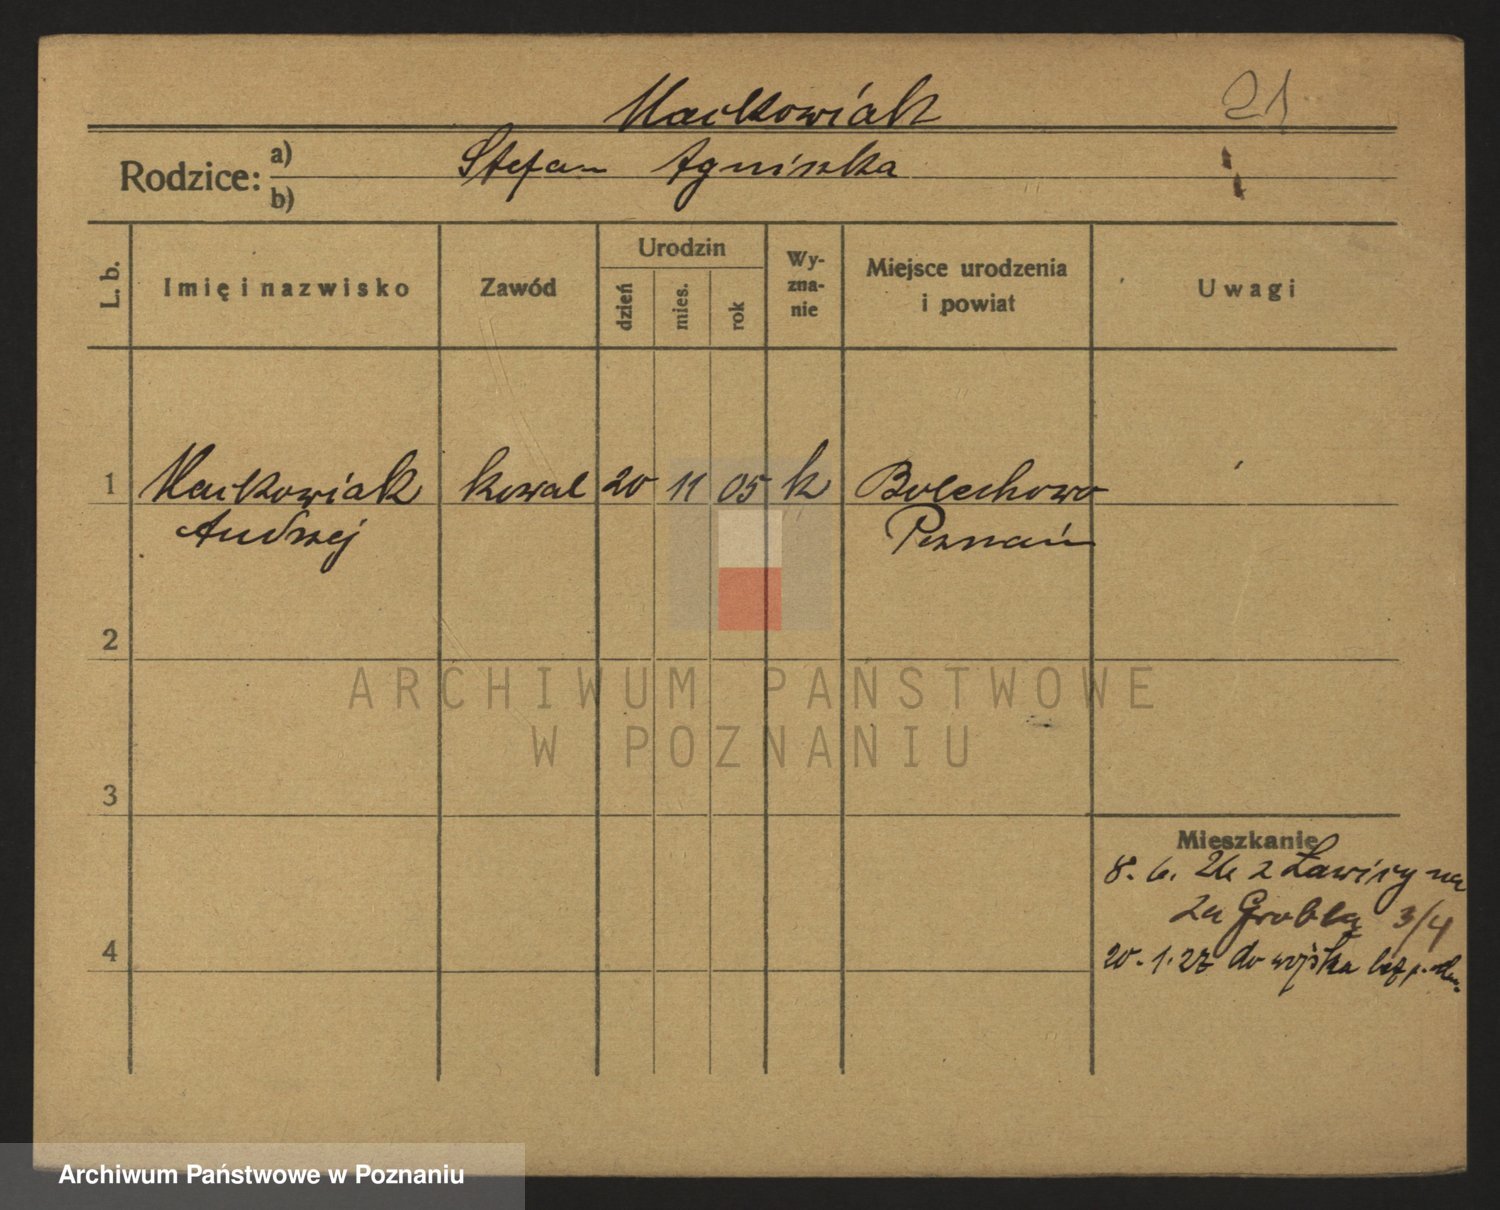 Mackowiak 21
Rodzice: a) Stefan Agniszka
b)
L. b. Imię i nazwisko Zawód Urodzin dzień mies. rok Wy-zna-nie Miejsce urodzenia i powiat Uwagi
1 Mackowiak kowal 20 11 05 k Bolechowo
Andrzej Poznań
2
ARCHIWUM PAŃSTWOWE
W POZNANIU
3
Mieszkanie
8. 6. 26 z Zawisy na
za Groblą 3/4
4
20. 1. 27 do wojska
Archiwum Państwowe w Poznaniu